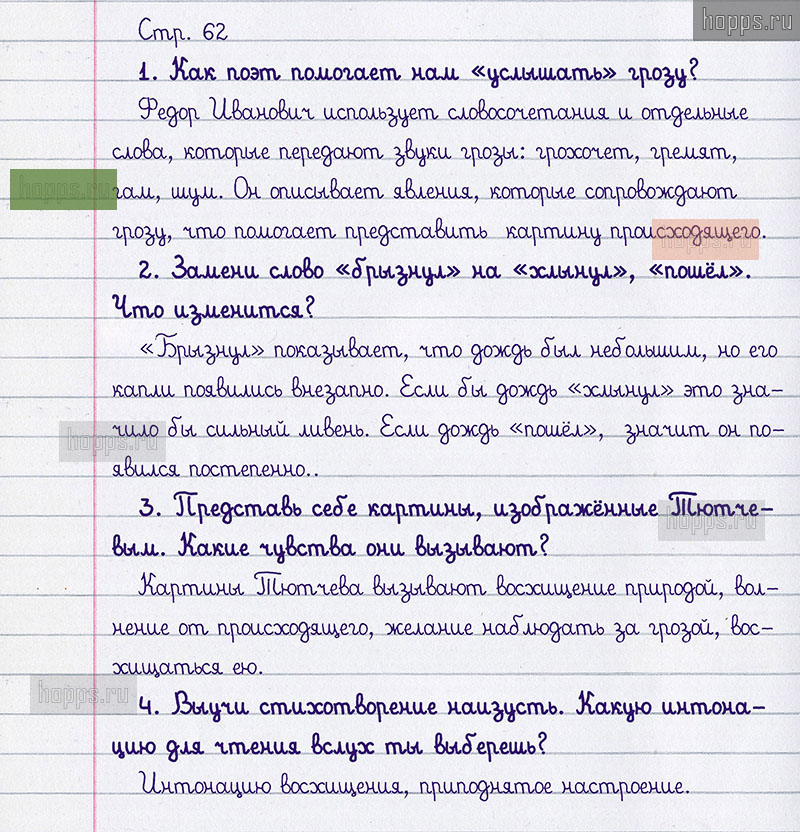 hopps.ru
Стр. 62
1. Как поэт помогает нам «услышать» грозу?
Федор Иванович использует словосочетания и отдельные
слова, которые передают звуки грозы: грохочет, гремят,
hopps.ru
гам, шум. Он описывает явления, которые сопровождают
грозу, что помогает представить картину происходящего.
hopps.ru
2. Замени слово «брызнул» на «хлынул», «пошёл».
Что изменится?
«Брызнул» показывает, что дождь был небольшим, но его
капли появились внезапно. Если бы дождь «хлынул» это зна-
чило бы сильный ливень. Если дождь «пошёл», значит он по-
hopps.ru
явился постепенно..
3. Представь себе картины, изображённые Тютче-
hopps.ru
вым. Какие чувства они вызывают?
Картины Тютчева вызывают восхищение природой, вол-
нение от происходящего, желание наблюдать за грозой, вос-
хищаться ею.
hopps.ru
4. Выучи стихотворение наизусть. Какую интона-
цию для чтения вслух ты выберешь?
Интонацию восхищения, приподнятое настроение.